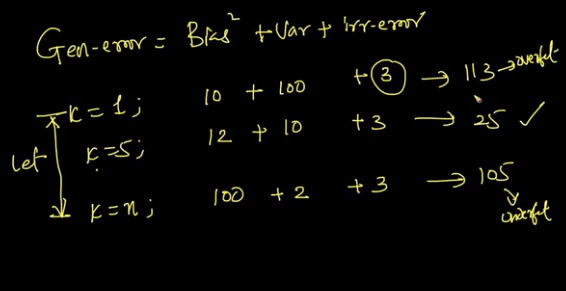 Gen-error = Bias² + Var + irr-error
k = 1; 10 + 100 + 3 → 113 → overfit
let k = 5; 12 + 10 + 3 → 25 ✓
k = n; 100 + 2 + 3 → 105
underfit